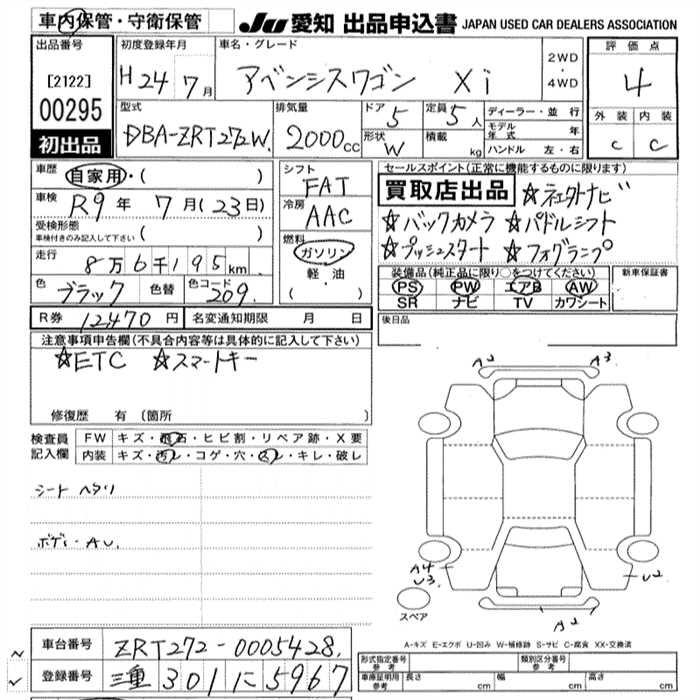 車内保管・守衛保管
JU 愛知 出品申込書 JAPAN USED CAR DEALERS ASSOCIATION
出品番号
[2122]
00295
初出品
初度登録年月
H24年 7月
車名・グレード
アベンシスワゴン Xi
2WD
・
4WD
評価点
4
外装 内装
C C
型式
DBA-ZRT272W.
排気量
2000cc
ドア 5
定員 5人
形状 W
積載 kg
ディーラー・並行
モデル年式 年
ハンドル 左・右
車歴 自家用・( )
車検 R9年 7月(23日)
受検形態
車検付きのみ記入して下さい ( )
走行 8万6千195km
色 ブラック 色替 色コード 209.
シフト
FAT
冷房
AAC
燃料
ガソリン
軽・油
( )
セールスポイント(正常に機能するものに限ります)
買取店出品 ☆ネェクトナビ
☆バックカメラ ☆パドルシフト
☆プッシュスタート ☆フォグランプ
装備品(純正品に限り○をつけてください)
PS PW エアB AW
SR ナビ TV カワシート
新車保証書
後日品
R券 12,470円 名変通知期限 月 日
注意事項申告欄(不具合内容等は具体的に記入して下さい)
☆ETC ☆スマートキー
修復歴 有(箇所
検査員記入欄
FW キズ・飛石・ヒビ割・リペア跡・X要
内装 キズ・汚レ・コゲ・穴・スレ・キレ・破レ
シート ヘタリ
ボディ・AU.
A2 A3
A4
U3
U2
A2
スペア
A-キズ E-エクボ U-凹み W-補修跡 S-サビ C-腐食 XX-交換済
車台番号 ZRT272-0005428.
登録番号 三重 301 に 5967
形式指定番号 参考
類別区分番号 参考
車庫証明用 参考 長さ cm 幅 cm 高さ cm